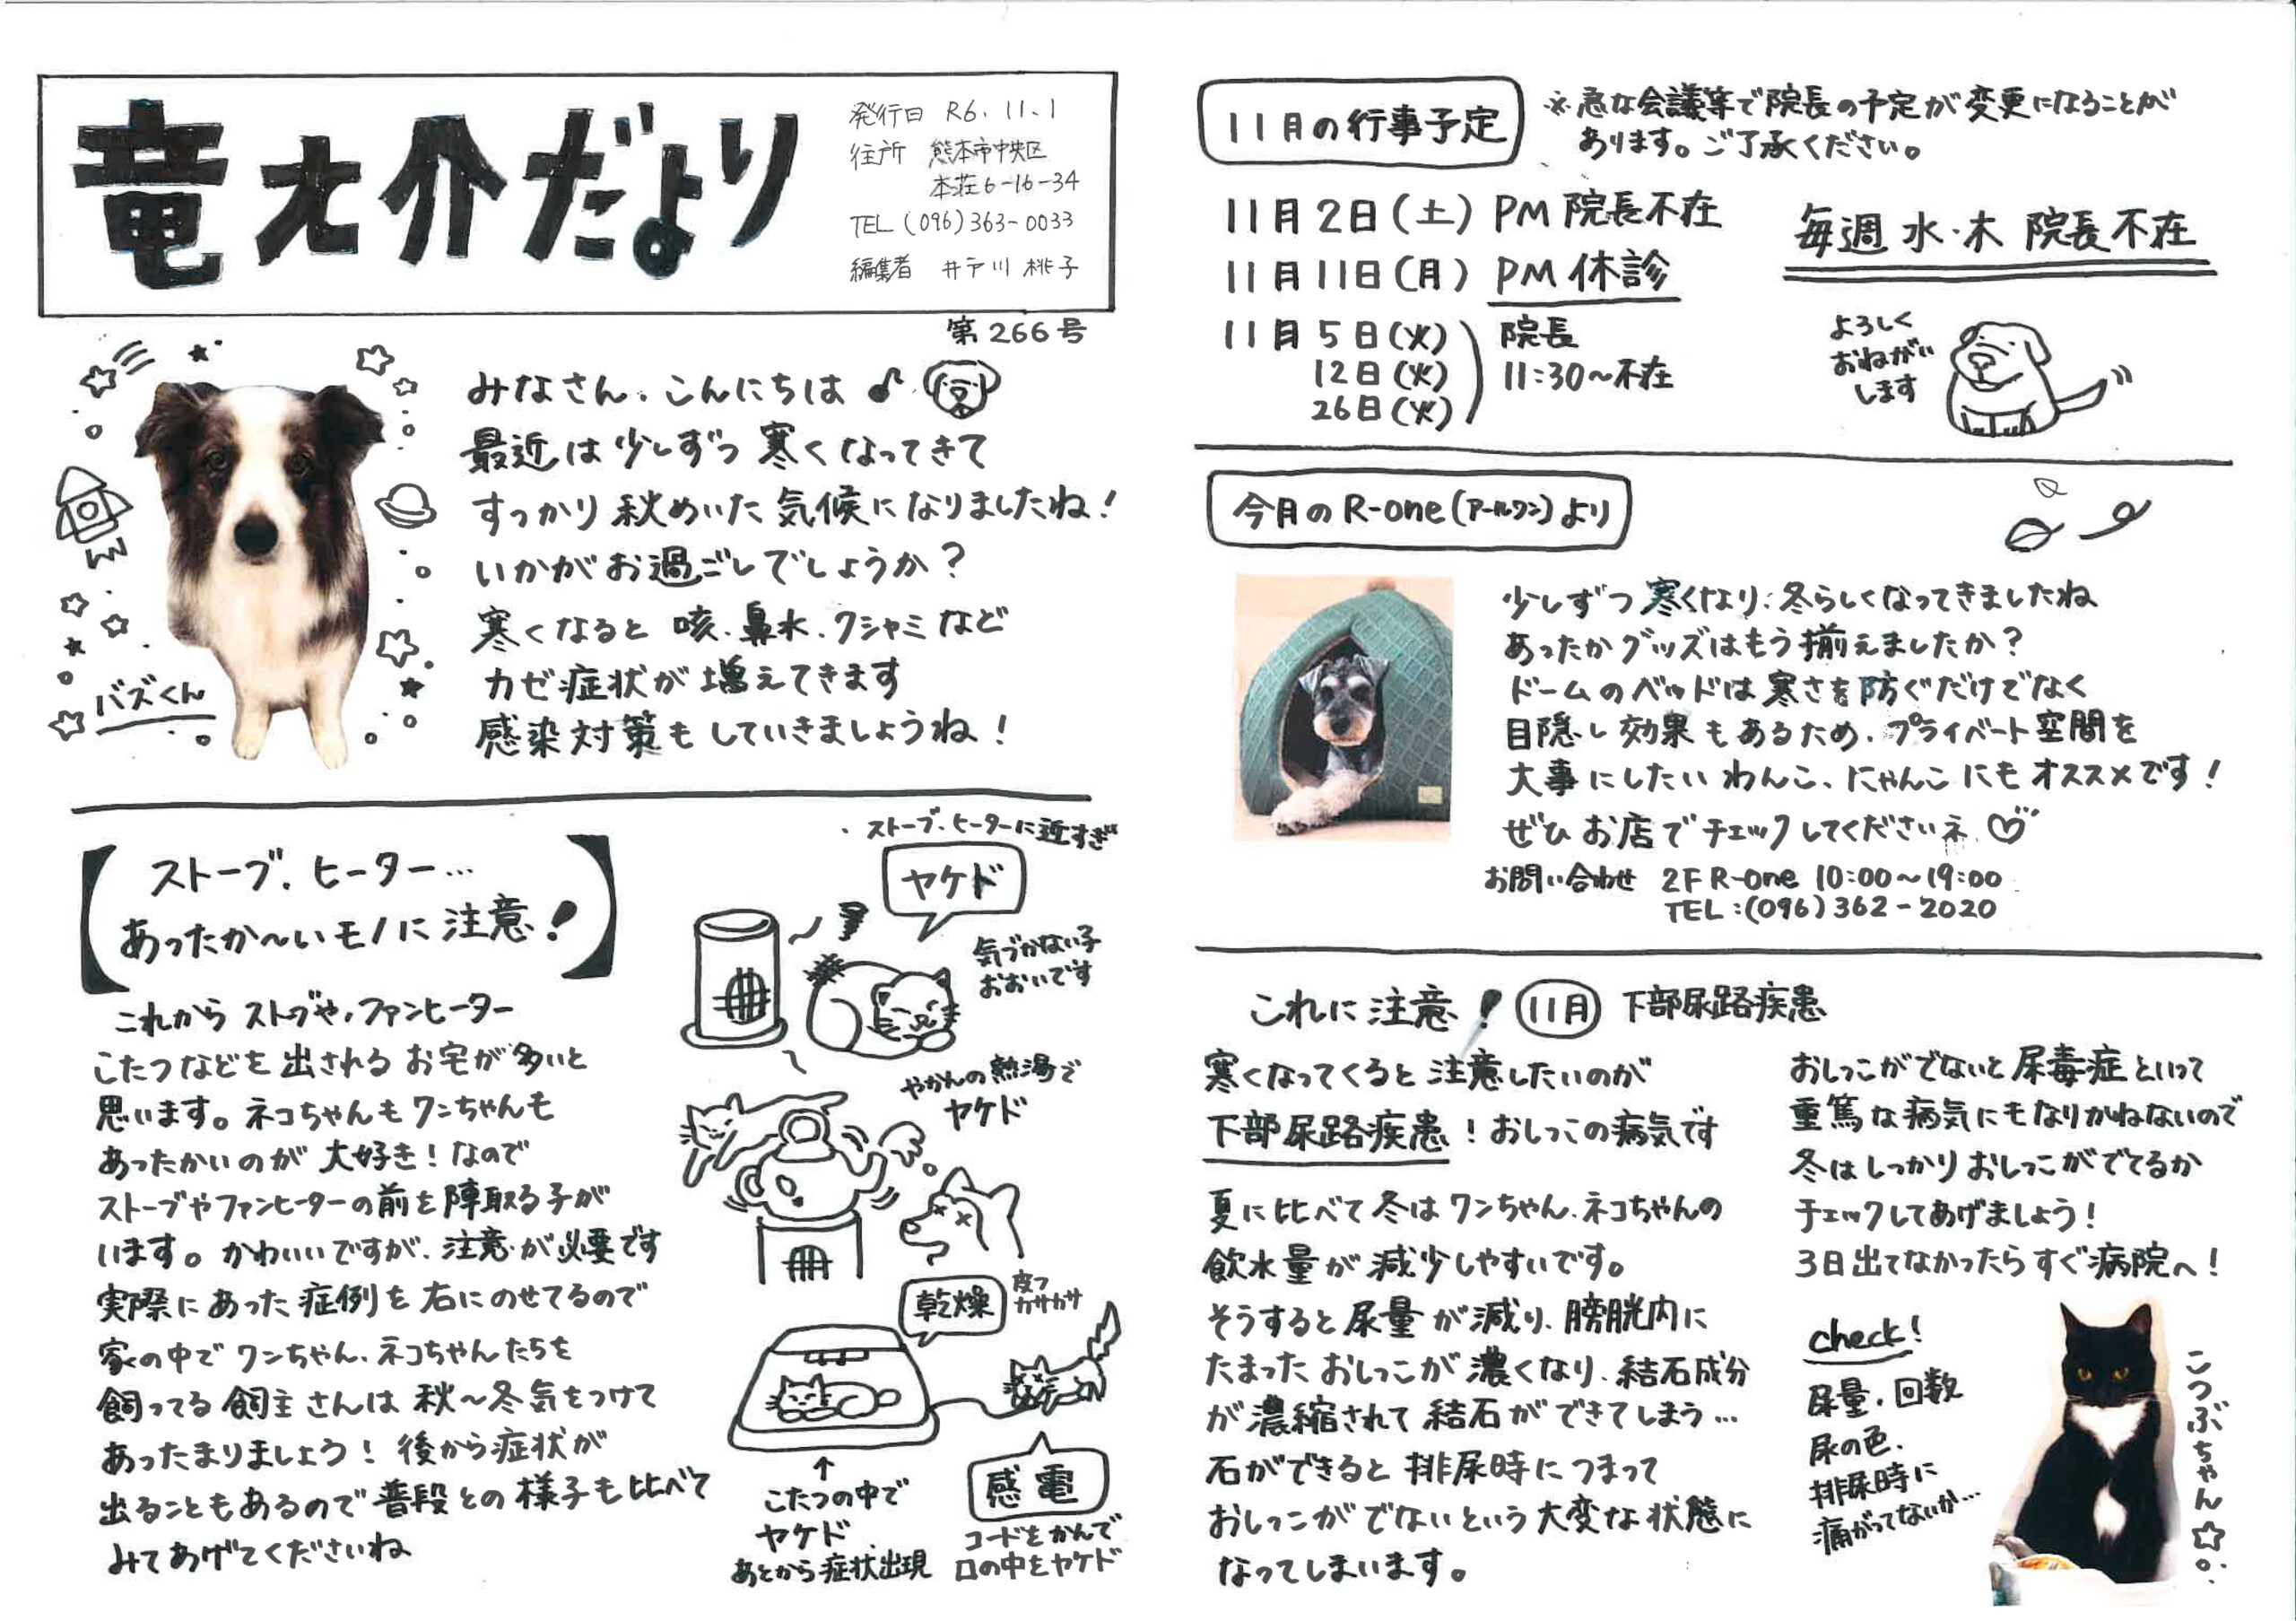 竜之介だより
発行日 R6.11.1
住所 熊本市中央区
本荘6-16-34
TEL (096)363-0033
編集者 井戸川 桃子
第266号
みなさん、こんにちは♪
最近は少しずつ寒くなってきて
すっかり秋めいた気候になりましたね!
いかがお過ごしでしょうか?
寒くなると咳、鼻水、クシャミなど
カゼ症状が増えてきます
感染対策もしていきましょうね!
バズくん
ストーブ、ヒーター…
あったか〜いモノに注意!
これからストブや、ファンヒーター
こたつなどを出されるお宅が多いと
思います。ネコちゃんもワンちゃんも
あったかいのが大好き!なので
ストーブやファンヒーターの前を陣取る子が
います。かわいいですが、注意が必要です
実際にあった症例を右にのせてるので
家の中でワンちゃん、ネコちゃんたちを
飼ってる飼主さんは秋〜冬気をつけて
あったまりましょう!後から症状が
出ることもあるので普段との様子も比べて
みてあげてくださいね
・ストーブ、ヒーターに近すぎ
ヤケド
気づかない子
おおいです
やかんの熱湯で
ヤケド
乾燥
皮フ
カサカサ
↑
こたつの中で
ヤケド
あとから症状出現
感電
コードをかんで
口の中をヤケド
11月の行事予定
※急な会議等で院長の予定が変更になることが
あります。ご了承ください。
11月2日(土) PM 院長不在
11月11日(月) PM 休診
11月5日(火)
12日(火)
26日(火)
院長
11:30〜不在
毎週 水・木 院長不在
よろしく
おねがい
します
今月のR-one(アールワン)より
少しずつ寒くなり、冬らしくなってきましたね
あったかグッズはもう揃えましたか?
ドームのベッドは寒さを防ぐだけでなく
目隠し効果もあるため、プライベート空間を
大事にしたいわんこ、にゃんこにもオススメです!
ぜひお店でチェックしてくださいネ♡
お問い合わせ 2F R-one 10:00〜19:00
TEL:(096)362-2020
これに注意! 11月 下部尿路疾患
寒くなってくると注意したいのが
下部尿路疾患!おしっこの病気です
夏に比べて冬はワンちゃん、ネコちゃんの
飲水量が減少しやすいです。
そうすると尿量が減り、膀胱内に
たまったおしっこが濃くなり、結石成分
が濃縮されて結石ができてしまう…
石ができると排尿時につまって
おしっこがでないという大変な状態に
なってしまいます。
おしっこがでないと尿毒症といって
重篤な病気にもなりかねないので
冬はしっかりおしっこがでてるか
チェックしてあげましょう!
3日出てなかったらすぐ病院へ!
check!
尿量、回数
尿の色、
排尿時に
痛がってないか…
こつぶちゃん☆。